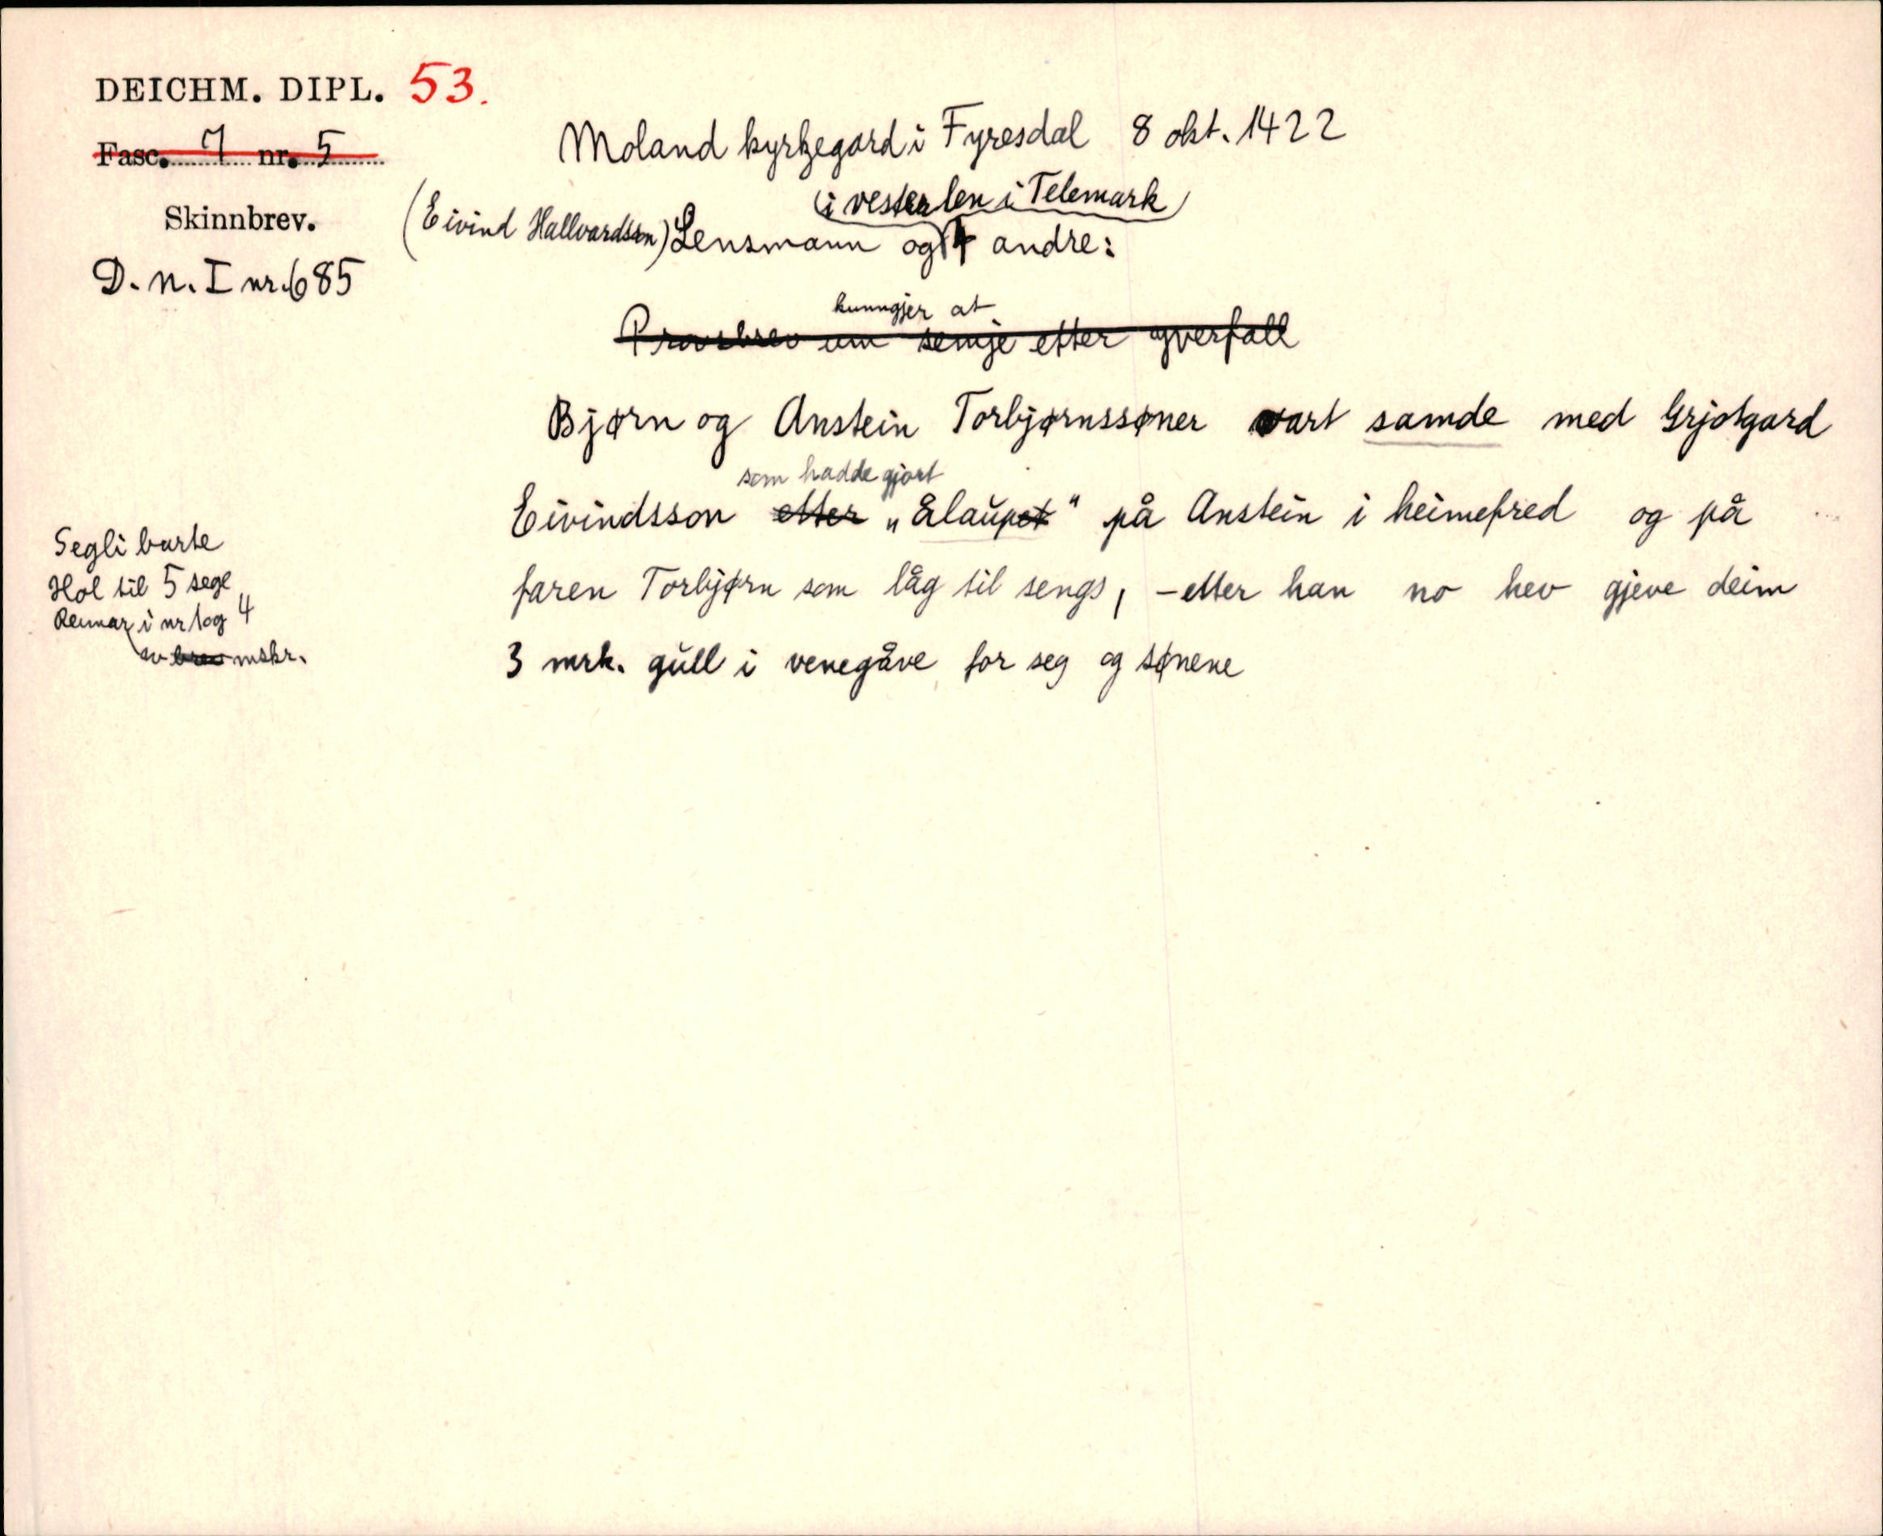 DEICHM. DIPL. 53.
Fasc. 7 nr. 5
Skinnbrev.
D. N. I nr. 685
Moland kyrkjegard i Fyresdal 8 okt. 1422
i vesterlen i Telemark
(Eivind Hallvardsson) Lensmann og 4 andre:
kunngjer at
Provsbrev um semje etter yverfall
Bjørn og Anstein Torbjørnssøner vart samde med Grjotgard
som hadde gjort
Eivindsson etter „ålaupet" på Anstein i heimefred og på
faren Torbjørn som låg til sengs, - etter han no hev gjeve deim
3 mrk. gull i venegåve for seg og sønene
Segli burte
Hol til 5 segl
Reimar i nr 1 og 4
av brev mskr.